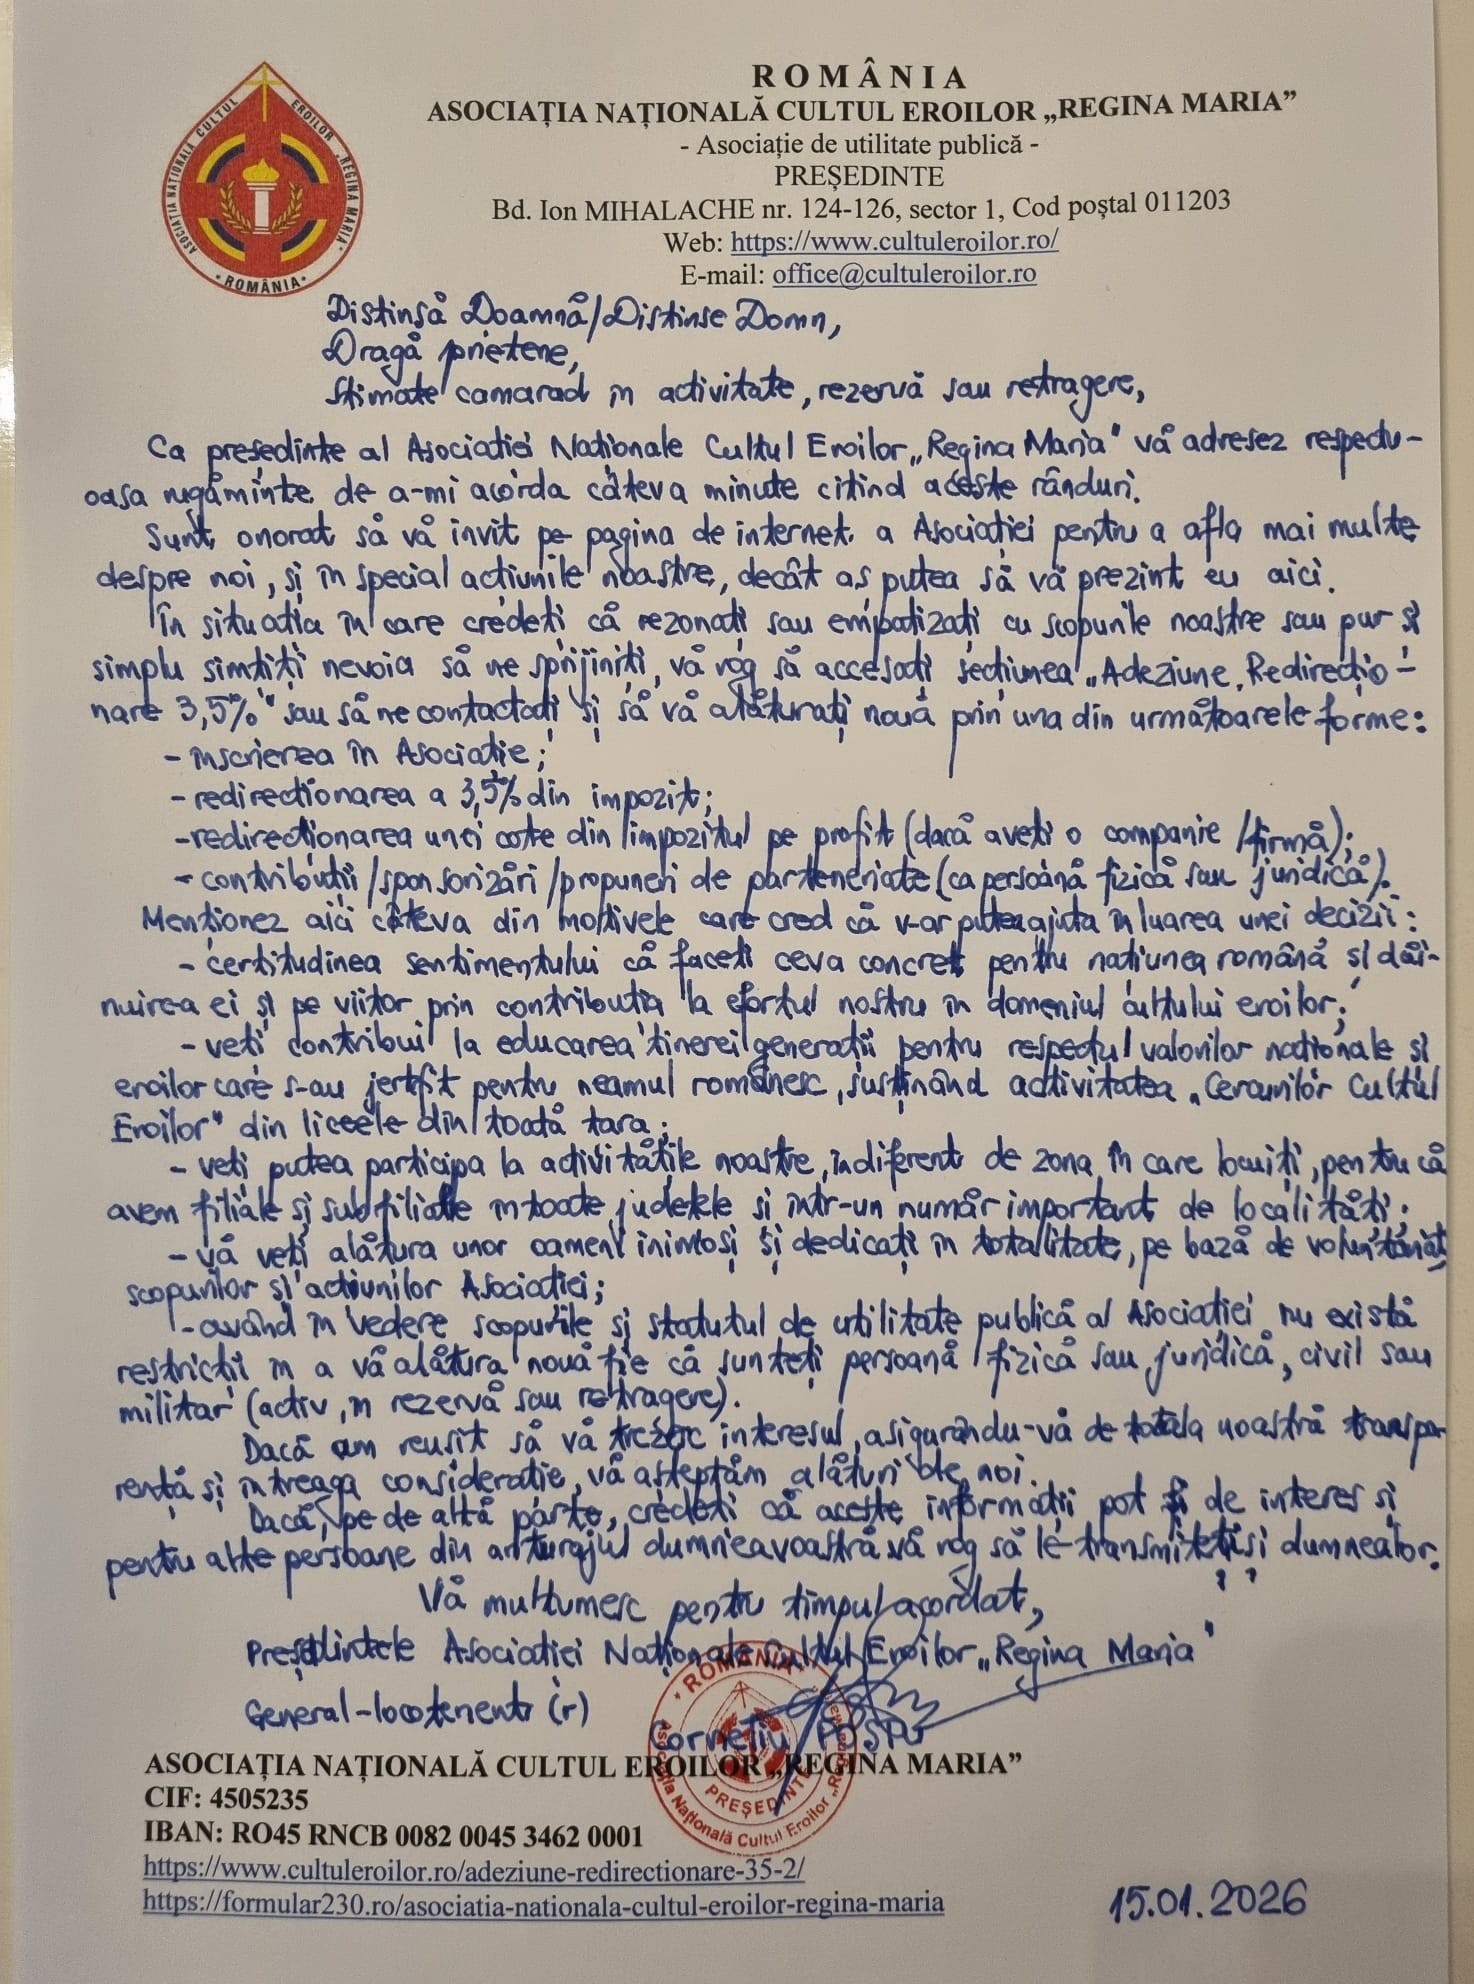 ASOCIAȚIA NAȚIONALĂ CULTUL EROILOR „REGINA MARIA"
• ROMÂNIA •
ROMÂNIA
ASOCIAȚIA NAȚIONALĂ CULTUL EROILOR „REGINA MARIA”
- Asociație de utilitate publică -
PREȘEDINTE
Bd. Ion MIHALACHE nr. 124-126, sector 1, Cod poștal 011203
Web: https://www.cultuleroilor.ro/
E-mail: office@cultuleroilor.ro
Distinsă Doamnă/Distinse Domn,
Dragă prietene,
Stimate camarad în activitate, rezervă sau retragere,
Ca președinte al Asociației Naționale Cultul Eroilor „Regina Maria" vă adresez respectu-
oasa rugăminte de a-mi acorda câteva minute citind aceste rânduri.
Sunt onorat să vă invit pe pagina de internet a Asociației pentru a afla mai multe
despre noi, și în special acțiunile noastre, decât aș putea să vă prezint eu aici.
În situația în care credeți că rezonați sau empatizați cu scopurile noastre sau pur și
simplu simțiți nevoia să ne sprijiniți, vă rog să accesați secțiunea „Adeziune, Redirecțio-
nare 3,5%" sau să ne contactați și să vă alăturați nouă prin una din următoarele forme:
- înscrierea în Asociație;
- redirecționarea a 3,5% din impozit;
- redirecționarea unei cote din impozitul pe profit (dacă aveți o companie/firmă);
- contribuții/sponsorizări/propuneri de parteneriate (ca persoană fizică sau juridică).
Menționez aici câteva din motivele care cred că v-ar putea ajuta în luarea unei decizii:
- certitudinea sentimentului că faceți ceva concret pentru națiunea română și dăi-
nuirea ei și pe viitor prin contribuția la efortul nostru în domeniul cultului eroilor;
- veți contribui la educarea tinerei generații pentru respectul valorilor naționale și
eroilor care s-au jertfit pentru neamul românesc, susținând activitatea „Cercurilor Cultul
Eroilor" din liceele din toată țara;
- veți putea participa la activitățile noastre, indiferent de zona în care locuiți, pentru că
avem filiale și subfiliale în toate județele și într-un număr important de localități;
- vă veți alătura unor oameni inimoși și dedicați în totalitate, pe bază de voluntariat,
scopurilor și acțiunilor Asociației;
- având în vedere scopurile și statutul de utilitate publică al Asociației nu există
restricții în a vă alătura nouă fie că sunteți persoană fizică sau juridică, civil sau
militar (activ, în rezervă sau retragere).
Dacă am reușit să vă trezesc interesul, asigurându-vă de totala noastră transpa-
rență și întreaga considerație, vă așteptăm alături de noi.
Dacă, pe de altă parte, credeți că aceste informații pot fi de interes și
pentru alte persoane din anturajul dumneavoastră vă rog să le transmiteți și dumnealor.
Vă mulțumesc pentru timpul acordat,
Președintele Asociației Naționale Cultul Eroilor „Regina Maria"
General-locotenent (r)
Corneliu POSTU
ROMÂNIA
PREȘEDINTE
Asociația Națională Cultul Eroilor „Regina Maria"
ASOCIAȚIA NAȚIONALĂ CULTUL EROILOR „REGINA MARIA”
CIF: 4505235
IBAN: RO45 RNCB 0082 0045 3462 0001
https://www.cultuleroilor.ro/adeziune-redirectionare-35-2/
https://formular230.ro/asociatia-nationala-cultul-eroilor-regina-maria
15.01.2026